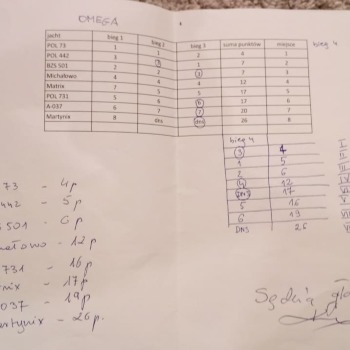 OMEGA
jacht bieg 1 bieg 2 bieg 3 suma punktów miejsce bieg 4
POL 73 1 1 2 4 1
POL 442 2 3 2 7 2
BZS 501 3 2 3 7 3
Michałowo 4 4 4 12 4
Matrix 7 5 5 17 5
POL 731 5 6 6 17 6
A-037 6 7 7 20 7
Martynix 8 DNS DNS 26 8
bieg 4
3 4 I
1 5 II
2 6 III
4 12
DNS 17
5 16
6 19
DNS 26
73 - 4p
442 - 5p
501 - 6p
ałowo - 12p
731 - 16p
17p
037 - 19p
artynix - 26p.
Sędzia